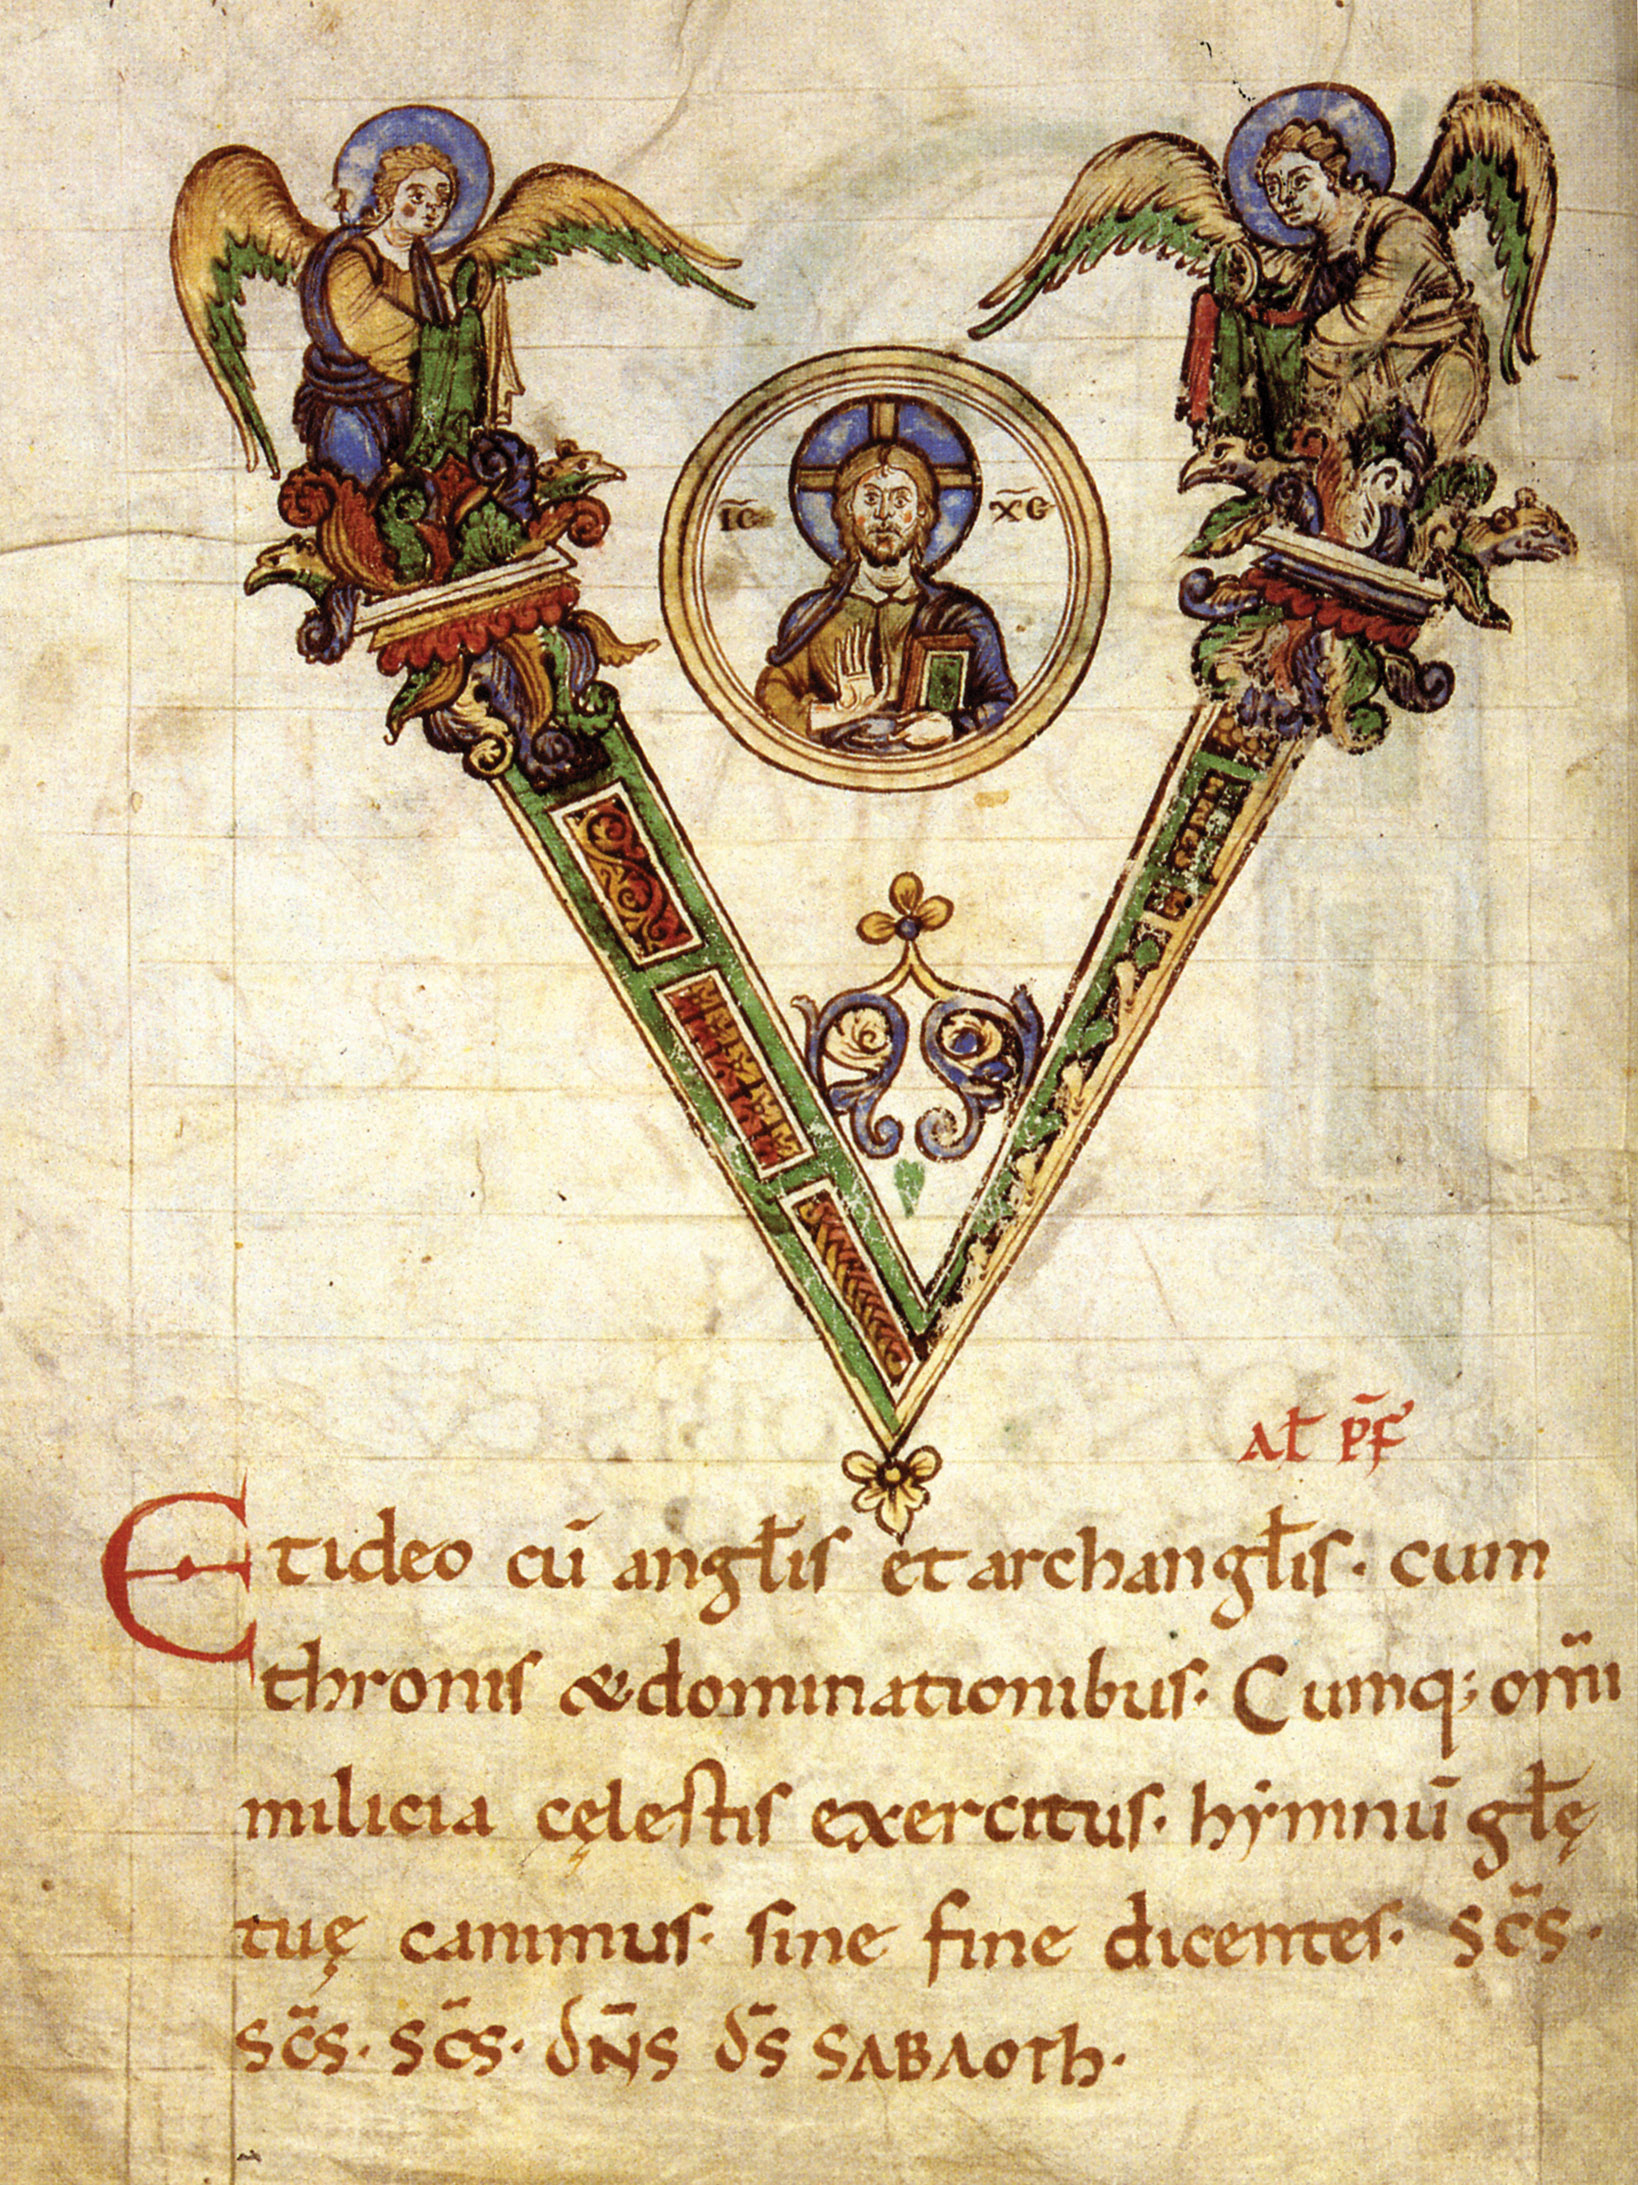 V
IC XC
Al̄ p̄f
Et ideo cū angl̄is et archangl̄is· cum
thronis & dominationibus· Cumq; om̄i
milicia cęlestis exercitus· hymnū gl̄ę
tuę canimus· sine fine dicentes· Sc̄s·
Sc̄s· Sc̄s· dn̄s ds̄ SABAOTh·